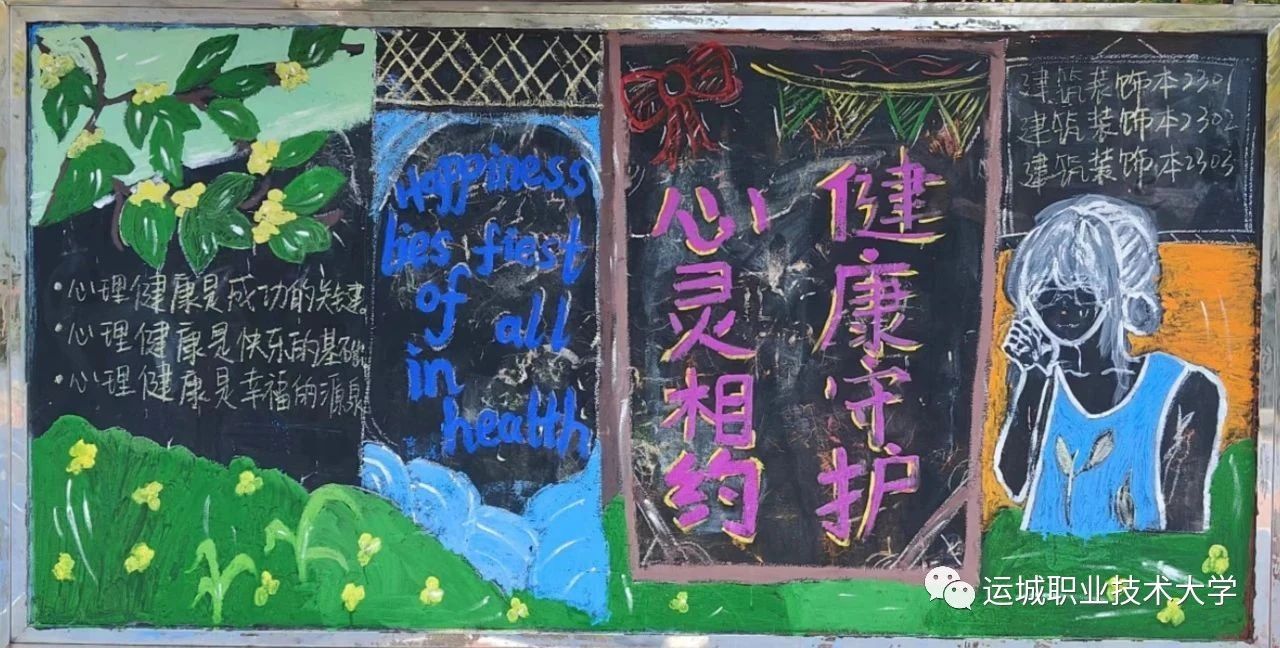 ·心理健康是成功的关键。
·心理健康是快乐的基础。
·心理健康是幸福的源泉
Happiness
lies fiest
of all
in
health
健康守护
心灵相约
建筑装饰本2301
建筑装饰本2302
建筑装饰本2303
运城职业技术大学